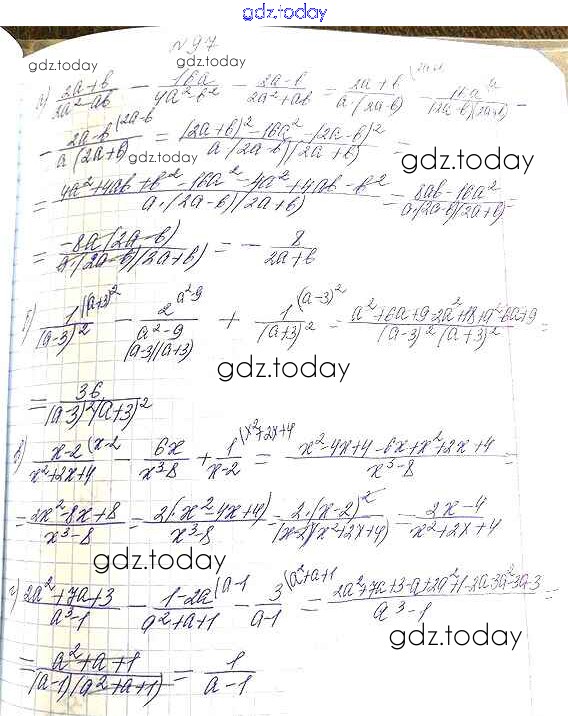 gdz.today
N97
gdz.today
gdz.today
а) (2a+b)/(2a²-ab) - 16a/(4a²-b²) - (2a-b)/(2a²+ab) = (2a+b)/(a·(2a-b)) - 16a/((2a-b)(2a+b)) -
- (2a-b)/(a(2a+b)) = ((2a+b)²-16a²-(2a-b)²)/(a(2a-b)(2a+b)) =
gdz.today
= (4a²+4ab+b²-16a²-4a²+4ab-b²)/(a·(2a-b)(2a+b)) = (8ab-16a²)/(a·(2a-b)(2a+b)) =
= (-8a(2a-b))/(a·(2a-b)(2a+b)) = - 8/(2a+b)
б) 1/(a-3)² (a+3)² - 2/(a²-9) a²-9 + 1/(a+3)² (a-3)² = (a²+6a+9-2a²+18+a²-6a+9)/((a-3)²(a+3)²) =
(a-3)(a+3)
gdz.today
= 36/((a-3)²(a+3)²)
в) (x-2)/(x²+2x+4) (x-2 - 6x/(x³-8) + 1/(x-2) (x²+2x+4 = (x²-4x+4-6x+x²+2x+4)/(x³-8) =
= (2x²-8x+8)/(x³-8) = 2(x²-4x+4)/(x³-8) = 2·(x-2)²/((x-2)(x²+2x+4)) = (2x-4)/(x²+2x+4)
gdz.today
г) (2a²+7a+3)/(a³-1) - (1-2a)/(a²+a+1) (a-1 - 3/(a-1) (a²+a+1 = (2a²+7a+3-a+2a²+1-2a-3a²-3a-3)/(a³-1) =
gdz.today
= (a²+a+1)/((a-1)(a²+a+1)) = 1/(a-1)